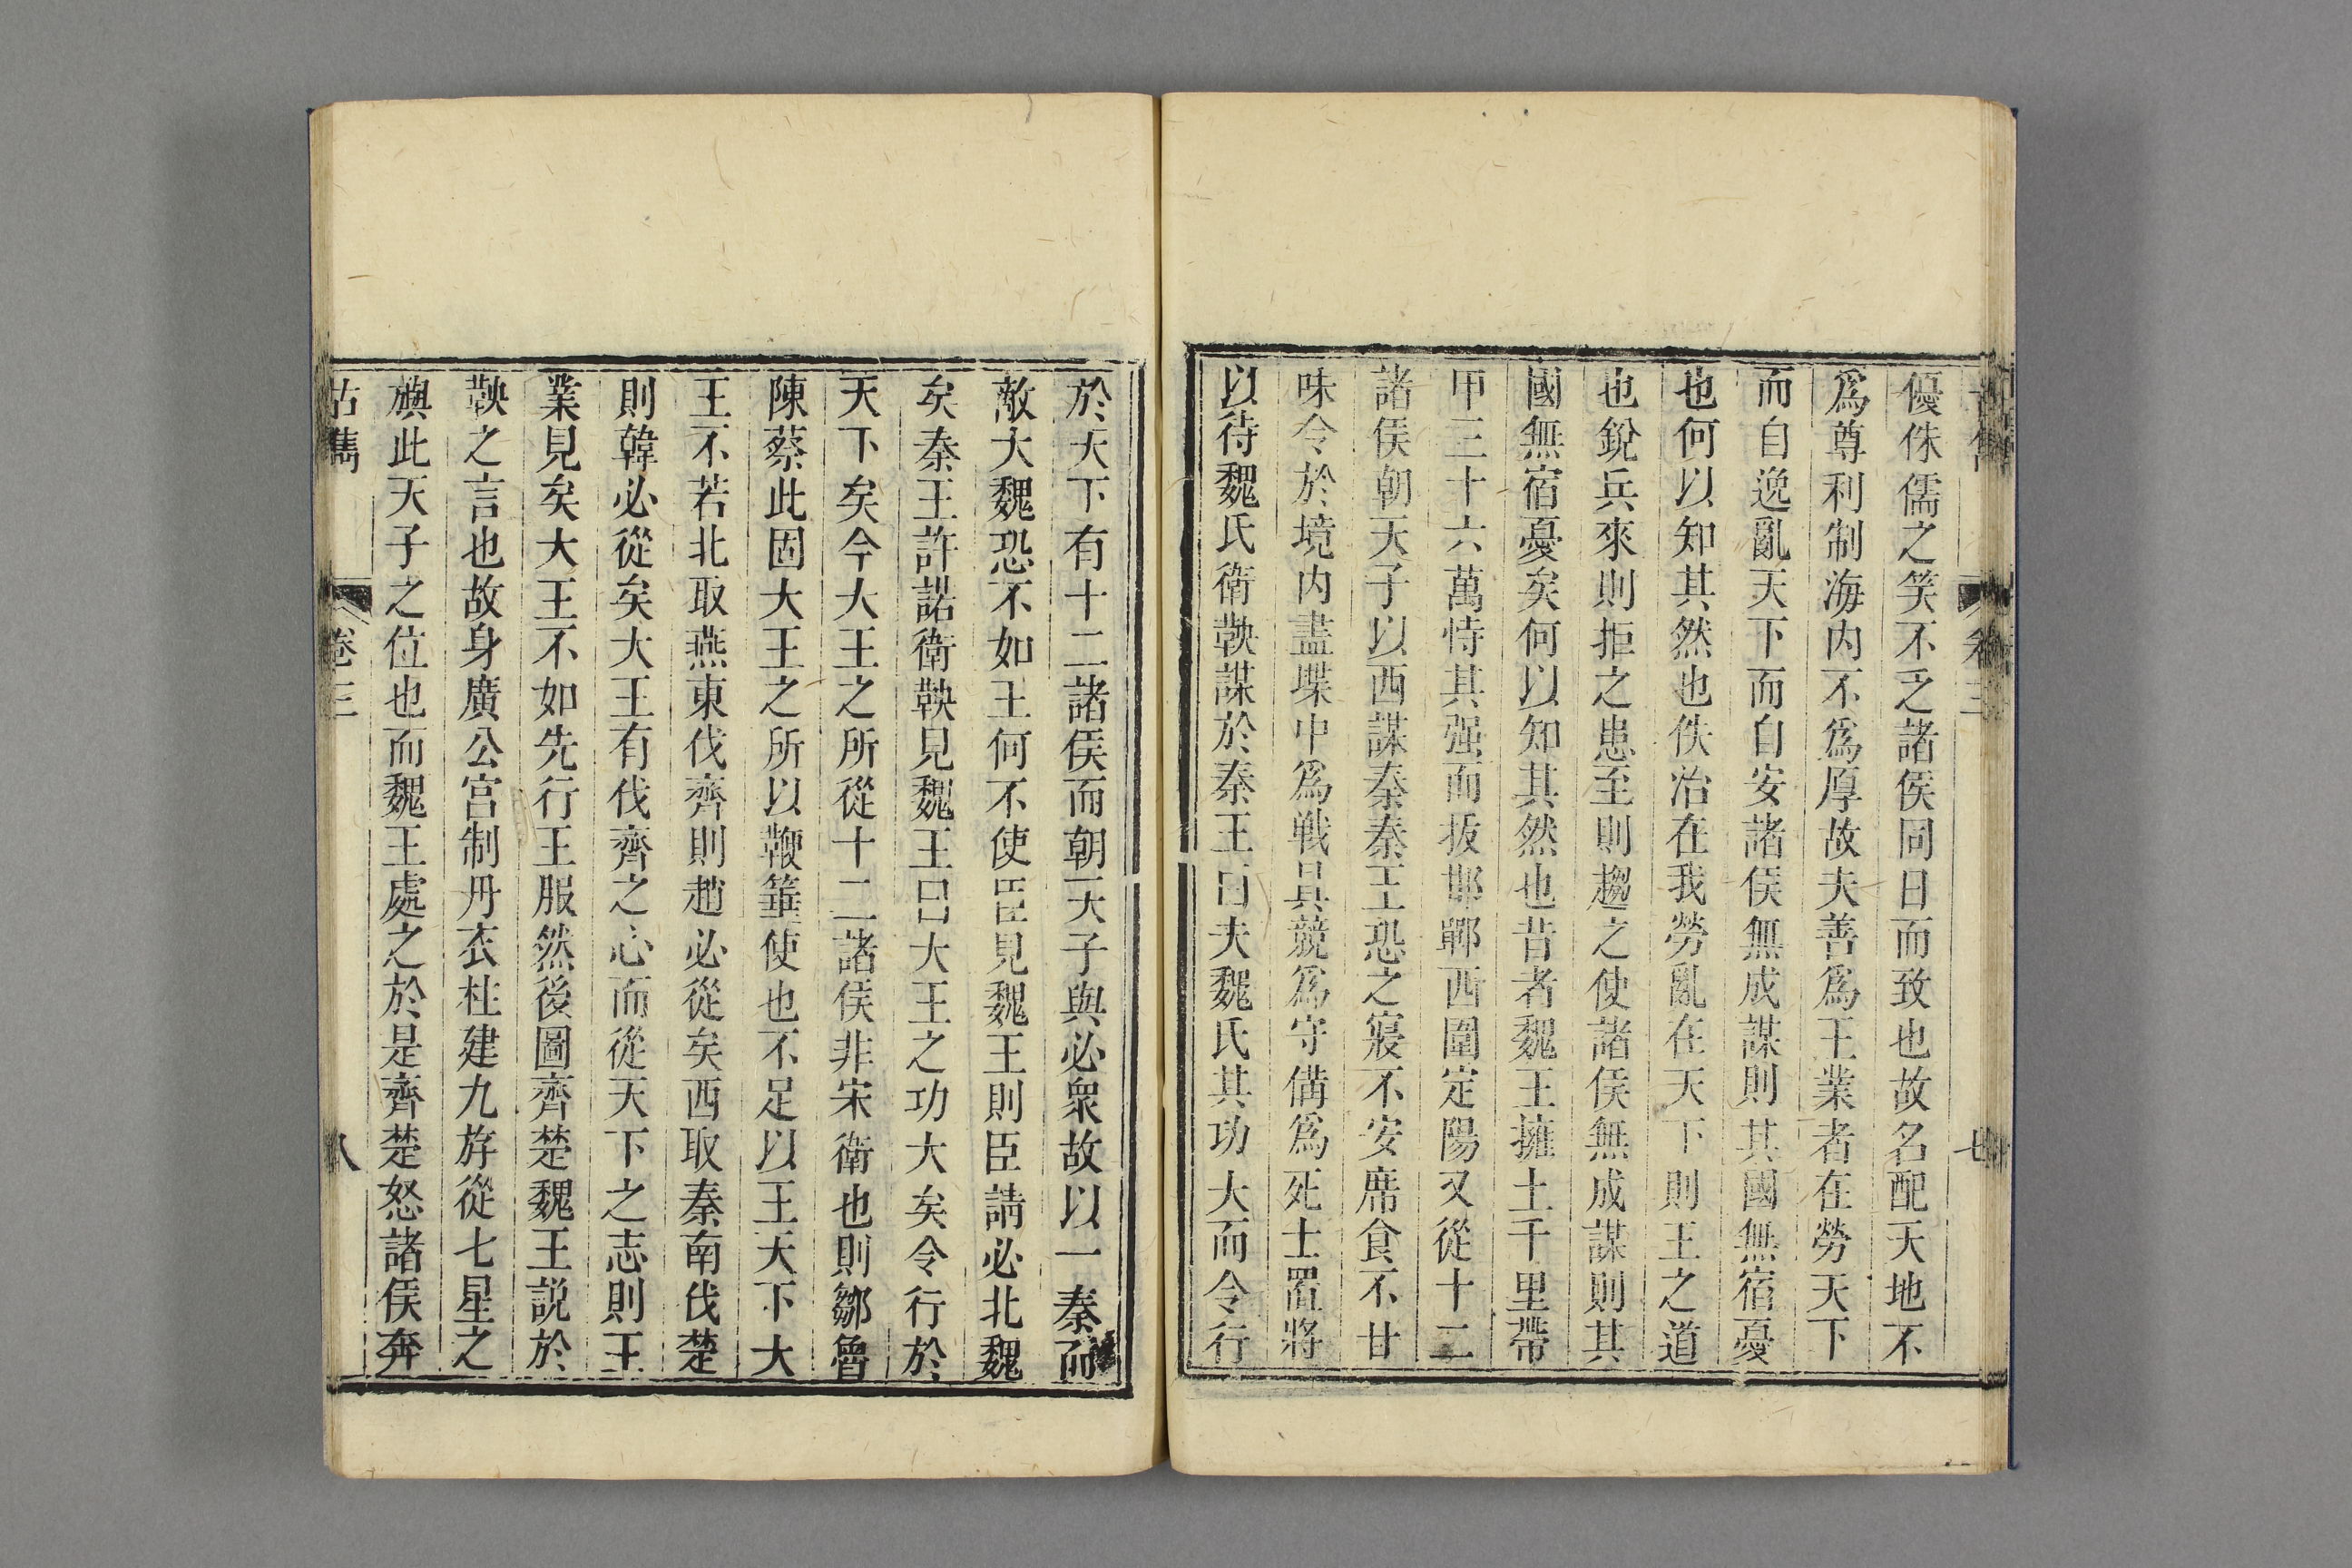 優侏儒之笑不乏諸侯同日而致也故名配天地不
爲尊利制海内不爲厚故夫善爲王業者在勞天下
而自逸亂天下而自安諸侯無成謀則其國無宿憂
也何以知其然也佚治在我勞亂在天下則王之道
也銳兵來則拒之患至則趨之使諸侯無成謀則其
國無宿憂矣何以知其然也昔者魏王擁土千里帶
甲三十六萬恃其强而拔邯鄲西圍定陽又從十二
諸侯朝天子以西謀秦秦王恐之寢不安席食不甘
味令於境内盡堞中爲戰具競爲守備爲死士置將
以待魏氏衛鞅謀於秦王曰夫魏氏其功大而令行
於天下有十二諸侯而朝天子與必衆故以一秦而
敵大魏恐不如王何不使臣見魏王則臣請必北魏
矣秦王許諾衛鞅見魏王曰大王之功大矣令行於
天下矣今大王之所從十二諸侯非宋衛也則鄒魯
陳蔡此固大王之所以鞭箠使也不足以王天下大
王不若北取燕東伐齊則趙必從矣西取秦南伐楚
則韓必從矣大王有伐齊之心而從天下之志則王
業見矣大王不如先行王服然後圖齊楚魏王説於
鞅之言也故身廣公宫制丹衣柱建九斿從七星之
旟此天子之位也而魏王處之於是齊楚怒諸侯奔
古雋 卷三 八